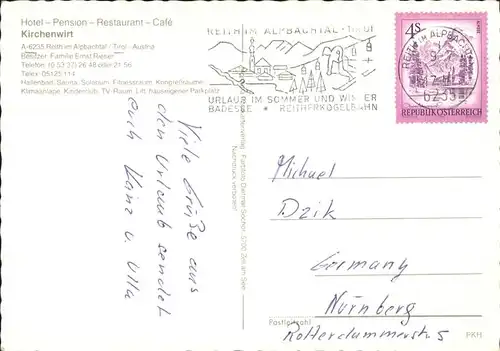 Hotel – Pension – Restaurant – Café
Kirchenwirt
A-6235 Reith im Alpbachtal / Tirol - Austria
Besitzer: Familie Ernst Rieser
Telefon: (0 53 37) 26 48 oder 21 56
Telex: 05125 114
Hallenbad, Sauna, Solarium, Fitnessraum, Kongreßräume,
Klimaanlage, Kinderclub, TV-Raum, Lift, hauseigener Parkplatz
REITH IM ALPBACHTAL · TIROL
URLAUB IM SOMMER UND WINTER
BADESEE * REITHERKOGELBAHN
REITH IM ALPBACHTAL
6235
4 S
REPUBLIK ÖSTERREICH
Viele Grüße aus
dem Urlaub sendet
euch Heinz u. Ulla
Nachdruck verboten!
Michael
Dzik
Germany
Nürnberg
Postleitzahl
Rotterdammerstr. 5
PKH